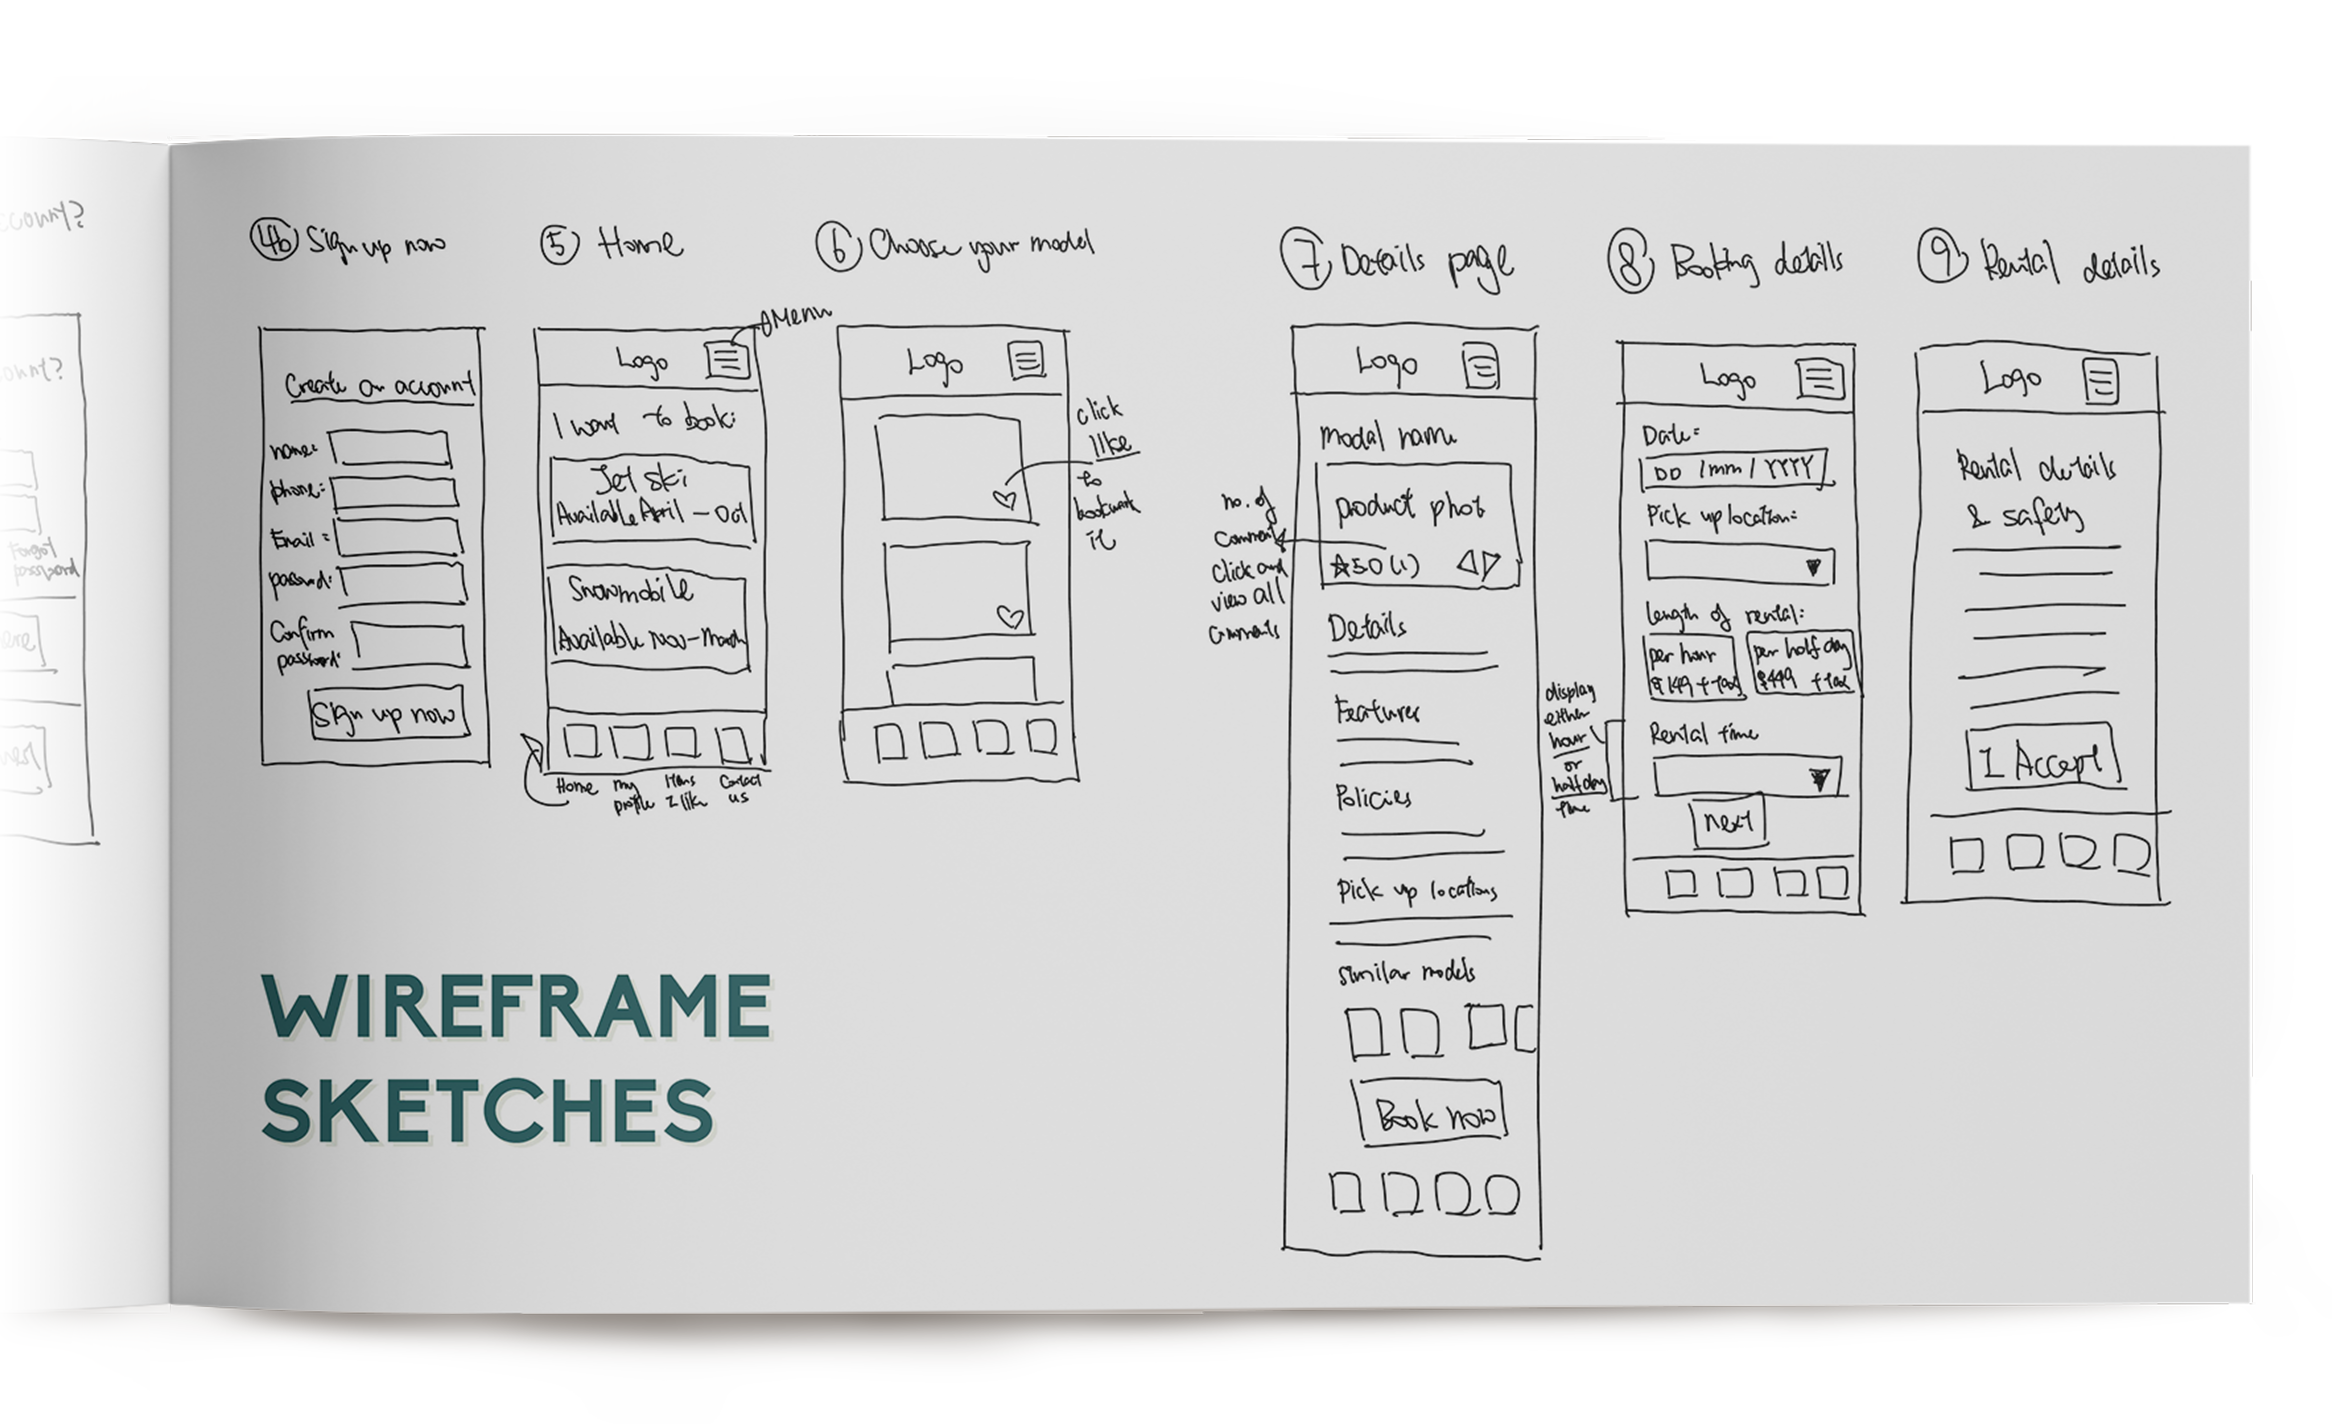 4b Sign up now
Create an account
name:
phone:
Email:
password:
Confirm
password:
Sign up now
5 Home
Menu
Logo
I want to book:
Jet ski
Available April - Oct
Snowmobile
Available Nov - March
Home
my
profile
Items
I like
Contact
us
6 Choose your model
Logo
click
like
to
bookmark
it
7 Details page
Logo
modal name
product phot
☆50 (1)
no. of
Comment
click and
view all
comments
Details
Features
Policies
Pick up locations
similar models
Book now
8 Booking details
Logo
Date:
DD / mm / YYYY
Pick up location:
length of rental:
per hour
$149 + tax
per half day
$449 + tax
Rental time
display
either
hour
or
half day
time
next
9 Rental details
Logo
Rental details
& safety
I Accept
Forgot
password
WIREFRAME
SKETCHES